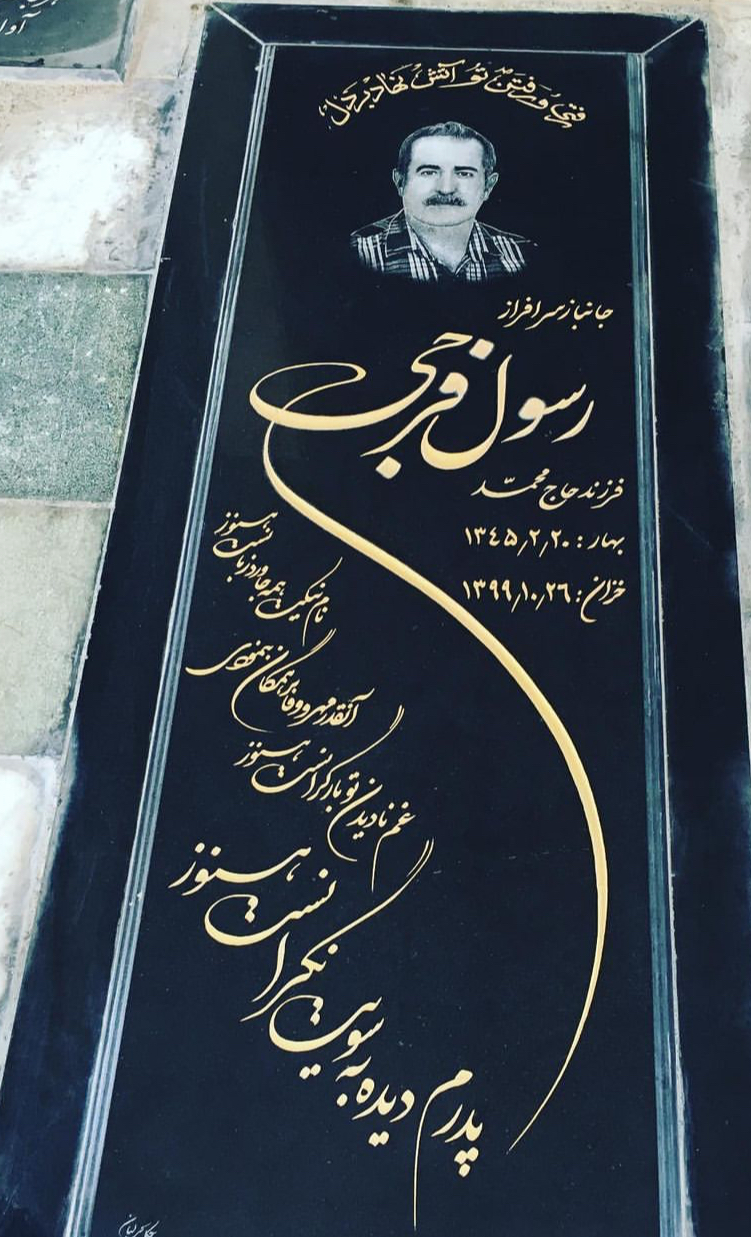 رفتی و رفتن تو آتش نهاد بر دل
جانباز سرافراز
رسول فرجی
فرزند حاج محمّد
بهار: ۱۳٤۵٫۲٫۲۰
خزان: ۱۳۹۹٫۱۰٫۲٦
نام نیکت همه جا ورد زبانست هنوز
آنقدر مهر و وفا بر همگان بنمودی
غم نادیدن تو بار گرانست هنوز
پدرم دیده به سویت نگرانست هنوز